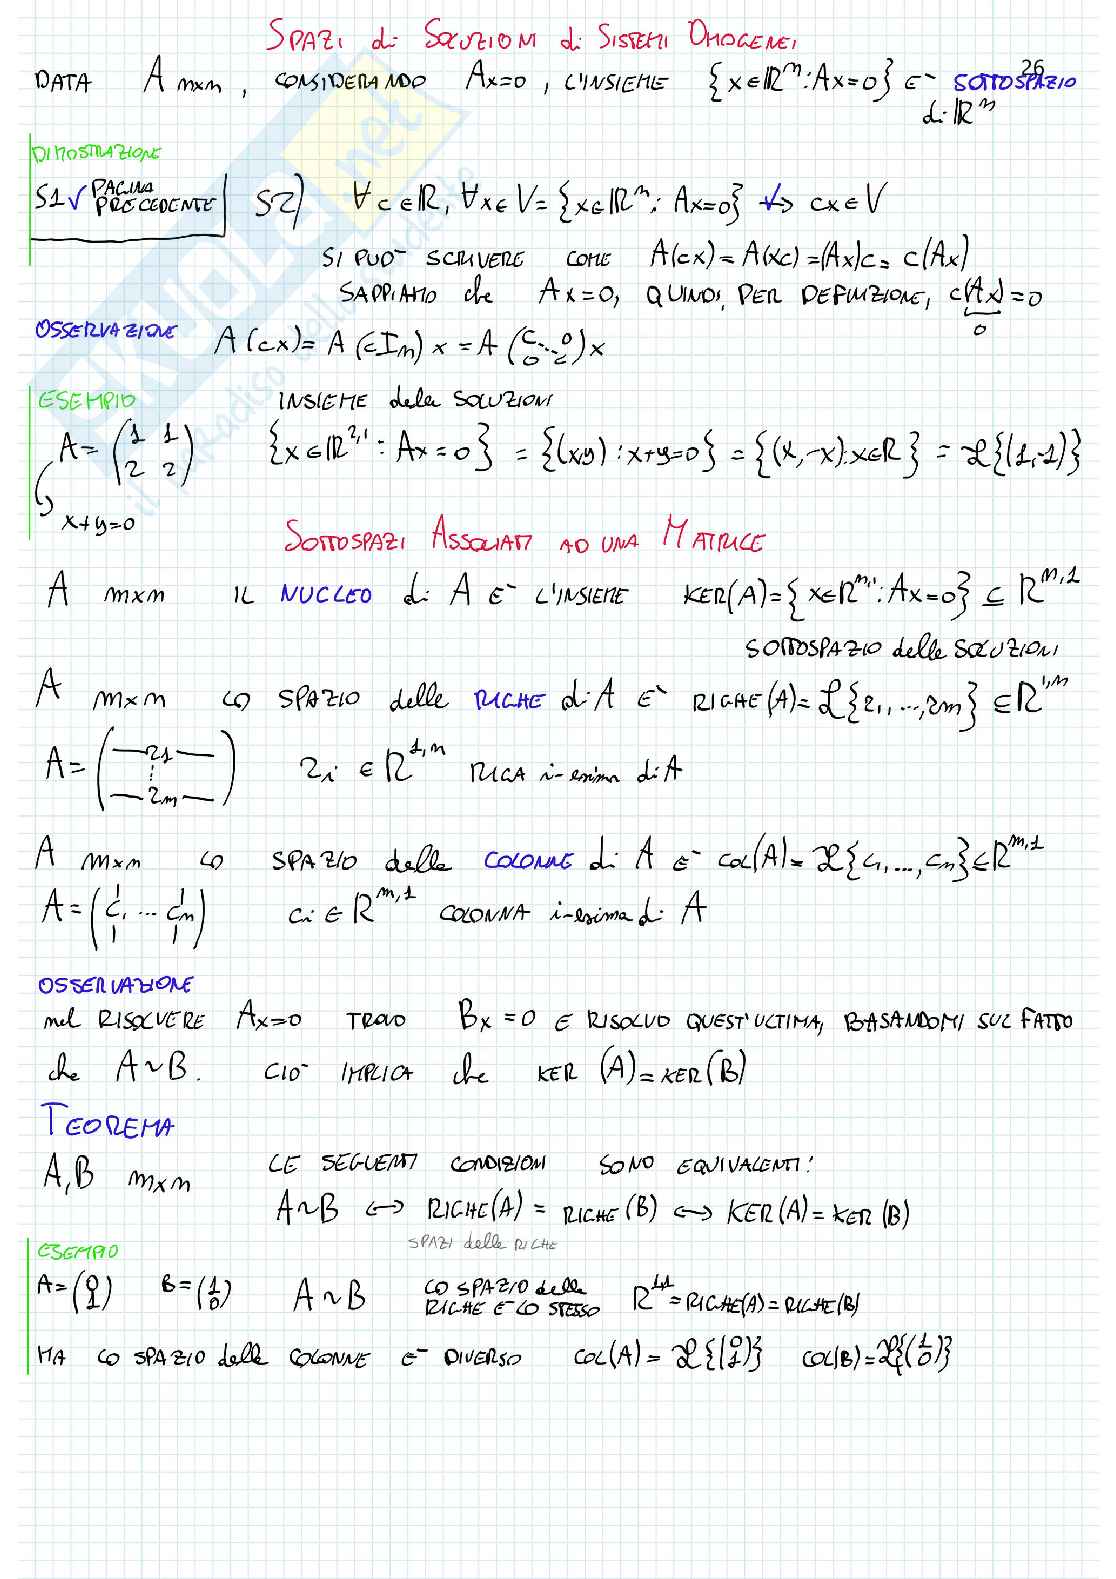 SPAZI di SOLUZIONI di SISTEMI OMOGENEI
26
DATA A m×n, CONSIDERANDO Ax=0, L'INSIEME {x∈ℝⁿ: Ax=0} E- SOTTOSPAZIO
di ℝⁿ
DIMOSTRAZIONE
S1 √ PAGINA PRECEDENTE S2) ∀c∈ℝ, ∀x∈V={x∈ℝⁿ: Ax=0} → cx∈V
SI PUO- SCRIVERE COME A(cx)=A(xc)=(Ax)c=c(Ax)
SAPPIAMO che Ax=0, QUINDI, PER DEFINIZIONE, c(Ax)=0
0
OSSERVAZIONE A(cx)=A(cIn)x=A(c...0 0...c)x
ESEMPIO INSIEME delle SOLUZIONI
A=(1 1 2 2) {x∈ℝ^2,1: Ax=0}={(x,y): x+y=0}={(x,-x): x∈ℝ}=ℒ{(1,-1)}
x+y=0
SOTTOSPAZI ASSOCIATI AD UNA MATRICE
A m×n IL NUCLEO di A E- L'INSIEME KER(A)={x∈ℝ^n,1: Ax=0} ⊆ ℝ^n,1
SOTTOSPAZIO delle SOLUZIONI
A m×n LO SPAZIO delle RIGHE di A E` RIGHE(A)=ℒ{r1,...,rm}∈ℝ^1,n
A=(—r1— ⋮ —rm—) ri∈ℝ^1,n RIGA i-esima di A
A m×n LO SPAZIO delle COLONNE di A E- COL(A)=ℒ{c1,...,cn}∈ℝ^m,1
A=(c1 ... cn) ci∈ℝ^m,1 COLONNA i-esima di A
OSSERVAZIONE
nel RISOLVERE Ax=0 TROVO Bx=0 E RISOLVO QUEST'ULTIMA, BASANDOMI SUL FATTO
che A~B. CIO- IMPLICA che KER(A)=KER(B)
TEOREMA
A,B m×n LE SEGUENTI CONDIZIONI SONO EQUIVALENTI:
A~B ↔ RIGHE(A)=RIGHE(B) ↔ KER(A)=KER(B)
SPAZI delle RIGHE
ESEMPIO
A=(0 1) B=(1 0) A~B LO SPAZIO delle RIGHE E- LO STESSO ℝ^1,1=RIGHE(A)=RIGHE(B)
MA LO SPAZIO delle COLONNE E- DIVERSO COL(A)=ℒ{(0 1)} COL(B)=ℒ{(1 0)}
SKUOLA.net
il paradiso dello